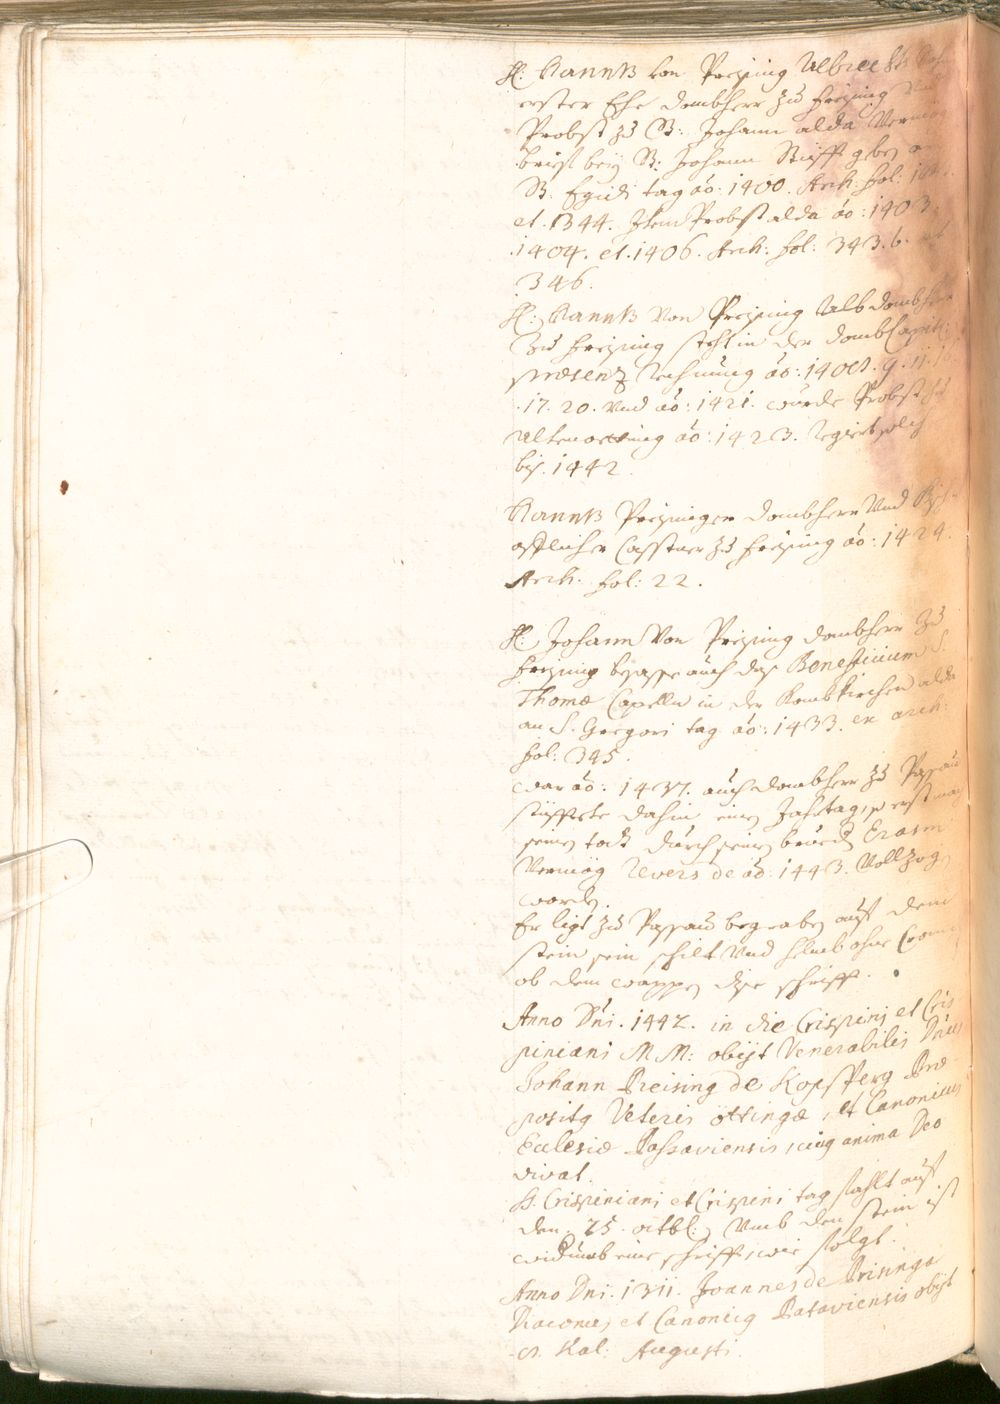 H: Hannß von Preysing Albrechts
erster Ehe dombherr zu Freysing
Probst zu St: Johann alda Vermög
brief bey St: Johann Stüfft geben
St. Egidi tag ao: 1400. Arch: fol:
et. 1344. Item Probst alda ao: 1403.
.1404. et. 1406. Arch: fol: 343. b. et
346.
H: Hannß Von Preysing Alb dombherr
Zu Freysing steht in der dombCapitl:
præsenz rechnung ao: 9. 11.
.17. 20. Vnd ao: 1421. wurde Probst zu
Altenoetting ao: 1423. regiert
biß. 1442
Hannß Preysinger dombherr Vnd Bisch
offlicher Casstner zu Freysing ao: 1424.
Arch: fol: 22.
H: Johann Von Preysing dombherr Zu
Freysing besasse auch das Beneficium S.
Thomæ Capelln in der Dombkirchen alda
an S. Gregori tag ao: 1433. ex arch:
fol: 345.
war ao: 1437. auch dombherr zu Passau
stüffte dahin einen Jahrtag, so erst nach
seinen todt durch seinen bruedern Erasm
Vermög Revers de ao: 1443. Vollzogen
worden.
Er ligt zu Passau begraben auf dem
stein sein schilt Vnd helmb ohne Cron
ob dem wappen dise schrifft.
Anno Dni. 1442. in die Crispini et Cris
piniani MM: obijt Venerabilis Dnus
Johann Preising de Kopfsperg Præ
positg Veteris öttingæ, et Canonicus
Ecclesiæ Passaviensis, cuig anima Deo
vivat.
St. Crispiniani et Crispini tag fahlt auf
den. 25. octbl: Vmb den stein ist
widumb eine schrifft, wie folgt.
Anno Dni. 1311. Joannes de Prisinga
Diaconus et Canonicg Pataviensis obijt
Kal: Augusti.